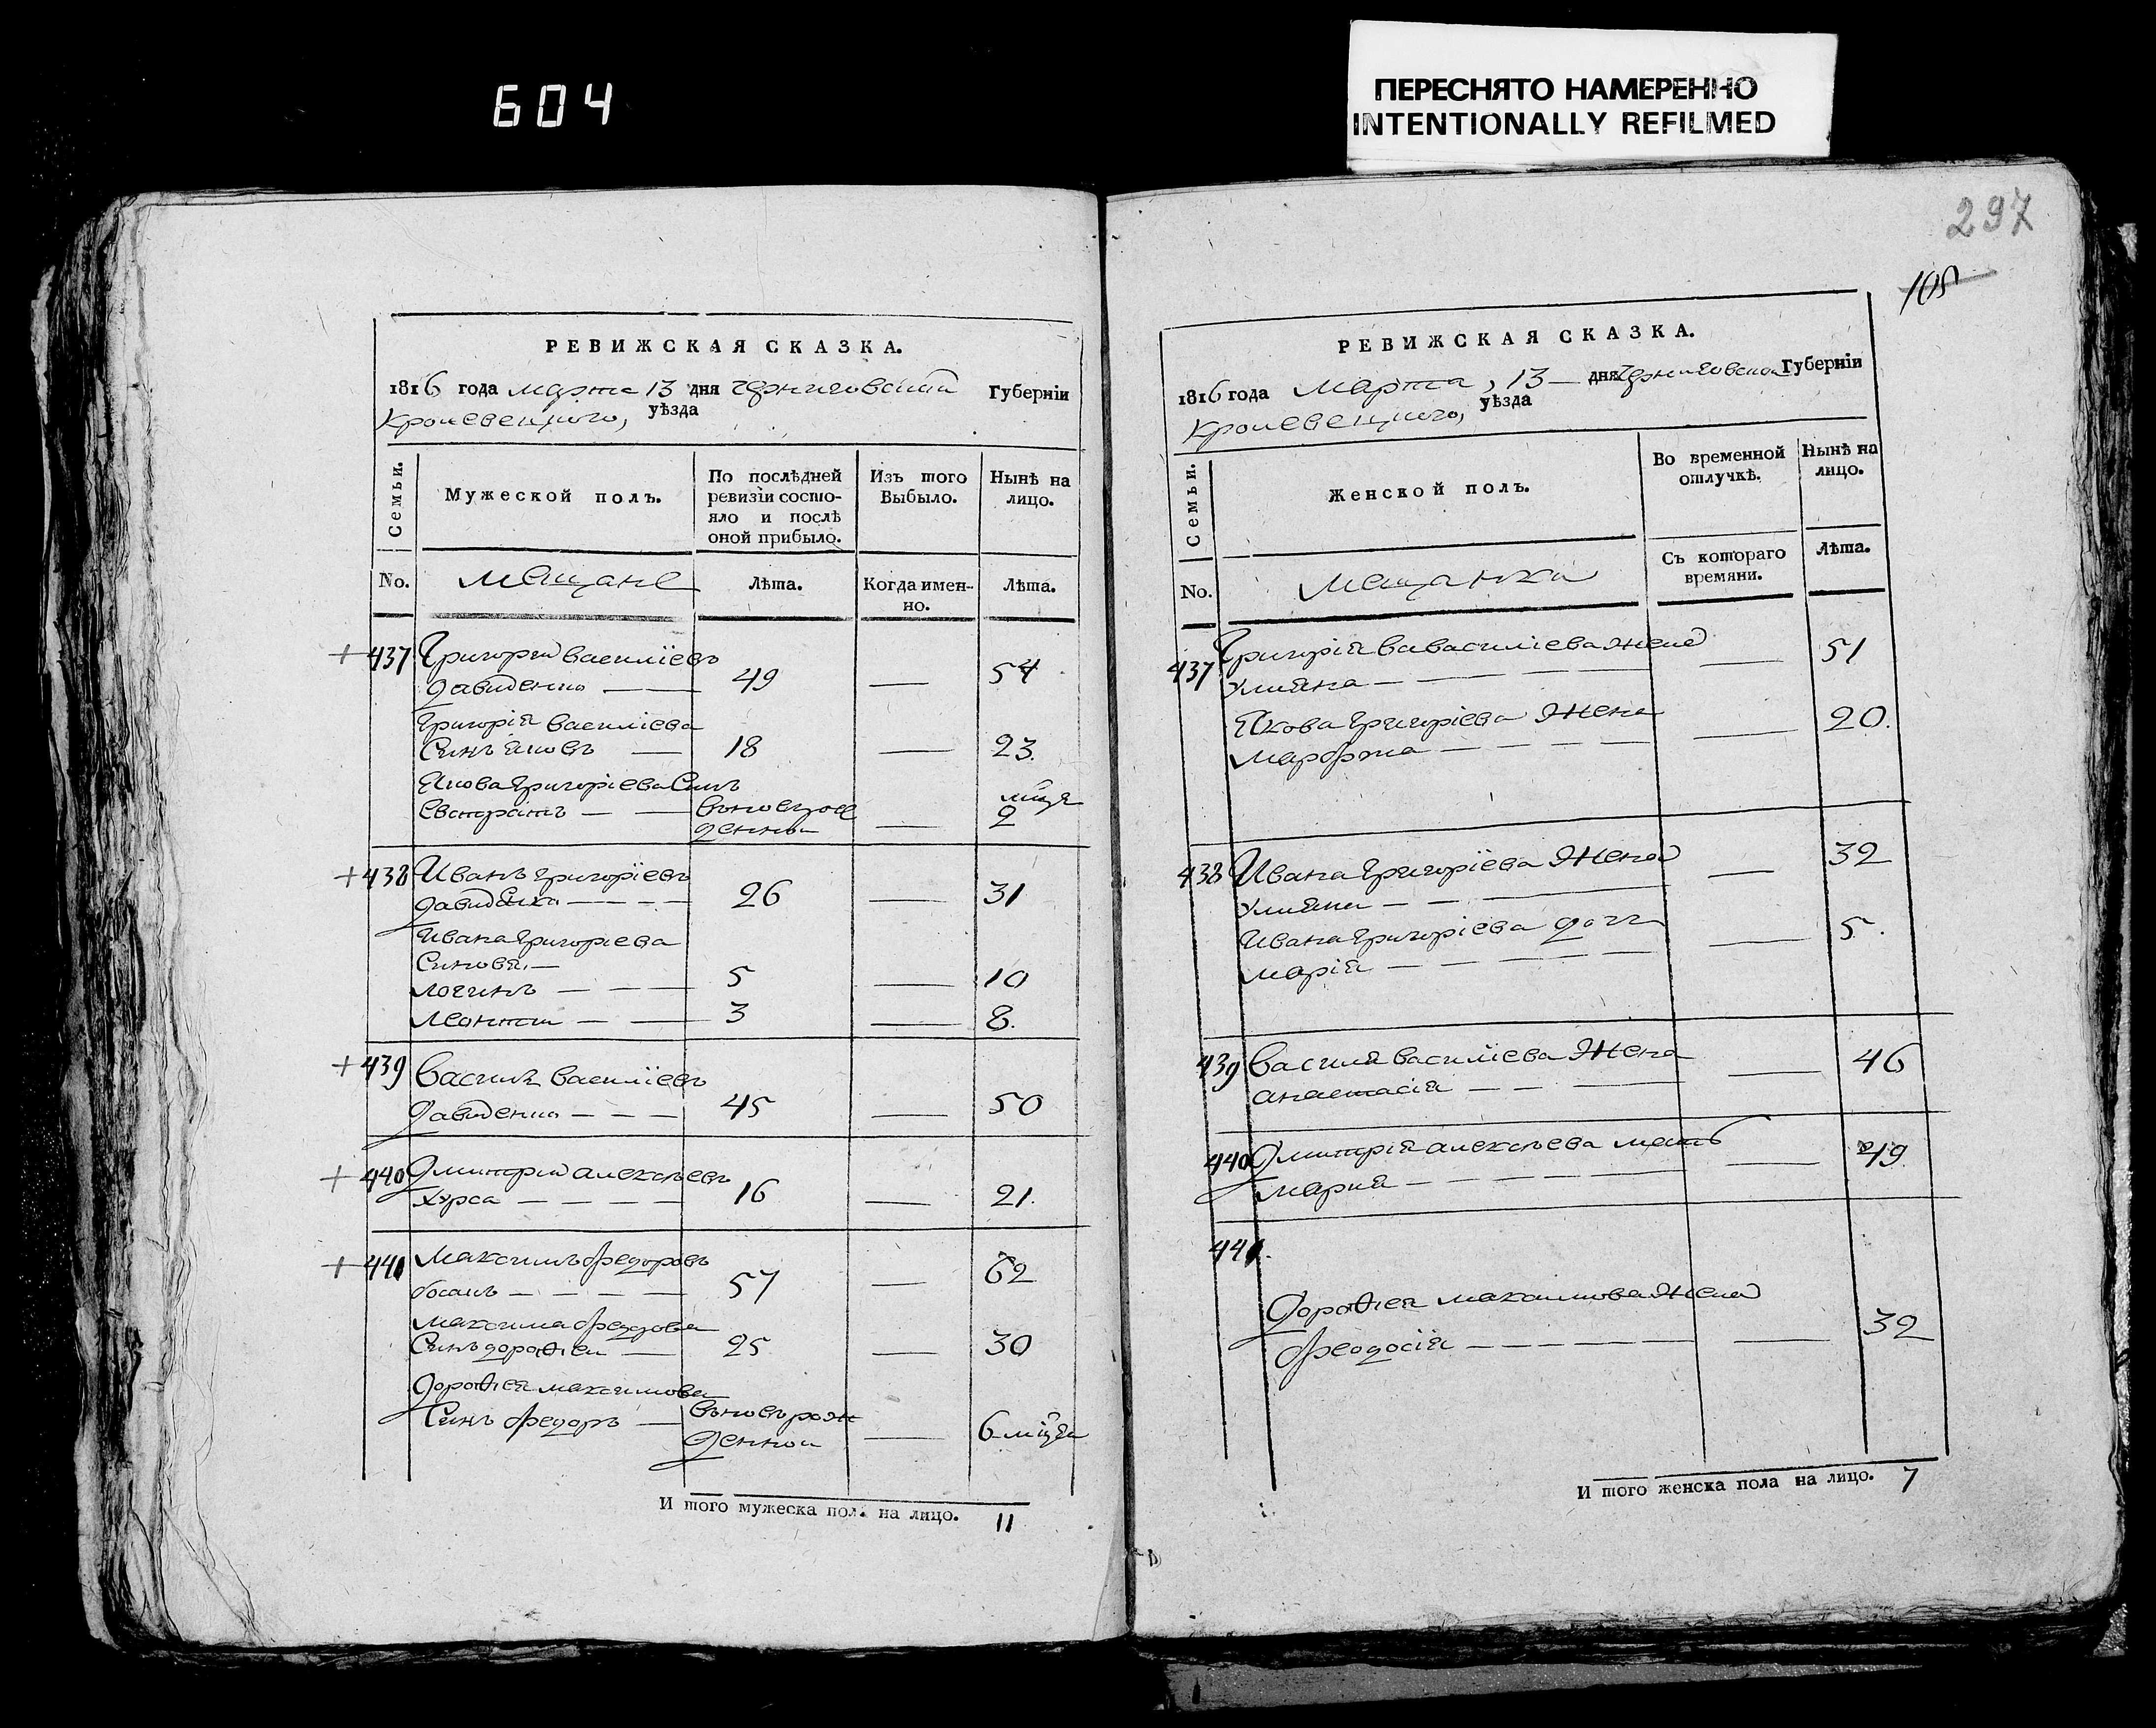 604
ПЕРЕСНЯТО НАМЕРЕННО
INTENTIONALLY REFILMED
297
105
РЕВИЖСКАЯ СКАЗКА.
1816 года марта 13 дня Черниговской Губернїи
Кролевецкого, уѣзда
Семьи.
Мужеской полъ.
По послѣдней ревизїи состояло и послѣ оной прибыло.
Изъ того Выбыло.
Нынѣ на лицо.
No.
мещане
Лѣта.
Когда именно.
Лѣта.
437 Григорий Василїевъ
Давиденко — 49 — 54
Григорїя Василїева
Синъ Яковъ — 18 — 23.
Якова Григорїева Синъ
Евстратъ — вновърожденной — 2 мця
438 Иванъ Григорїевъ
Давиденко — 26 — 31
Ивана Григорїева
Синовя —
Логинъ — 5 — 10
Леонтий — 3 — 8.
439 Василѣ Василїевъ
Давиденко — 45 — 50
440 Дмитрий Алексѣевъ
Хурса — 16 — 21.
441 Максимъ Федоровъ
— 57 — 62
Максима Федорова
Синъ Дорофей — 25 — 30
Дорофея Максимова
Синъ Федоръ — вновърожденной — 6 мця
И того мужеска пола на лицо. 11
РЕВИЖСКАЯ СКАЗКА.
1816 года Марта, 13 — дня Черниговской Губернїи
Кролевецкого, уѣзда
Семьи.
Женской полъ.
Во временной отлучкѣ.
Нынѣ на лицо.
No.
Мещанки
Съ котораго времяни.
Лѣта.
437 Григорїя Василїева жена
Улияна — 51
Якова Григорїева Жена
Марфа — 20.
438 Ивана Григорїева Жена
Улияна — 32
Ивана Григорїева дочь
Марїя — 5.
439 Василя Василїева Жена
Анастасїя — 46
440 Дмитрїя Алексѣева мать
Мария — 49.
441.
Дорофея Максимова Жена
Феодосїя — 32
И того женска пола на лицо. 7